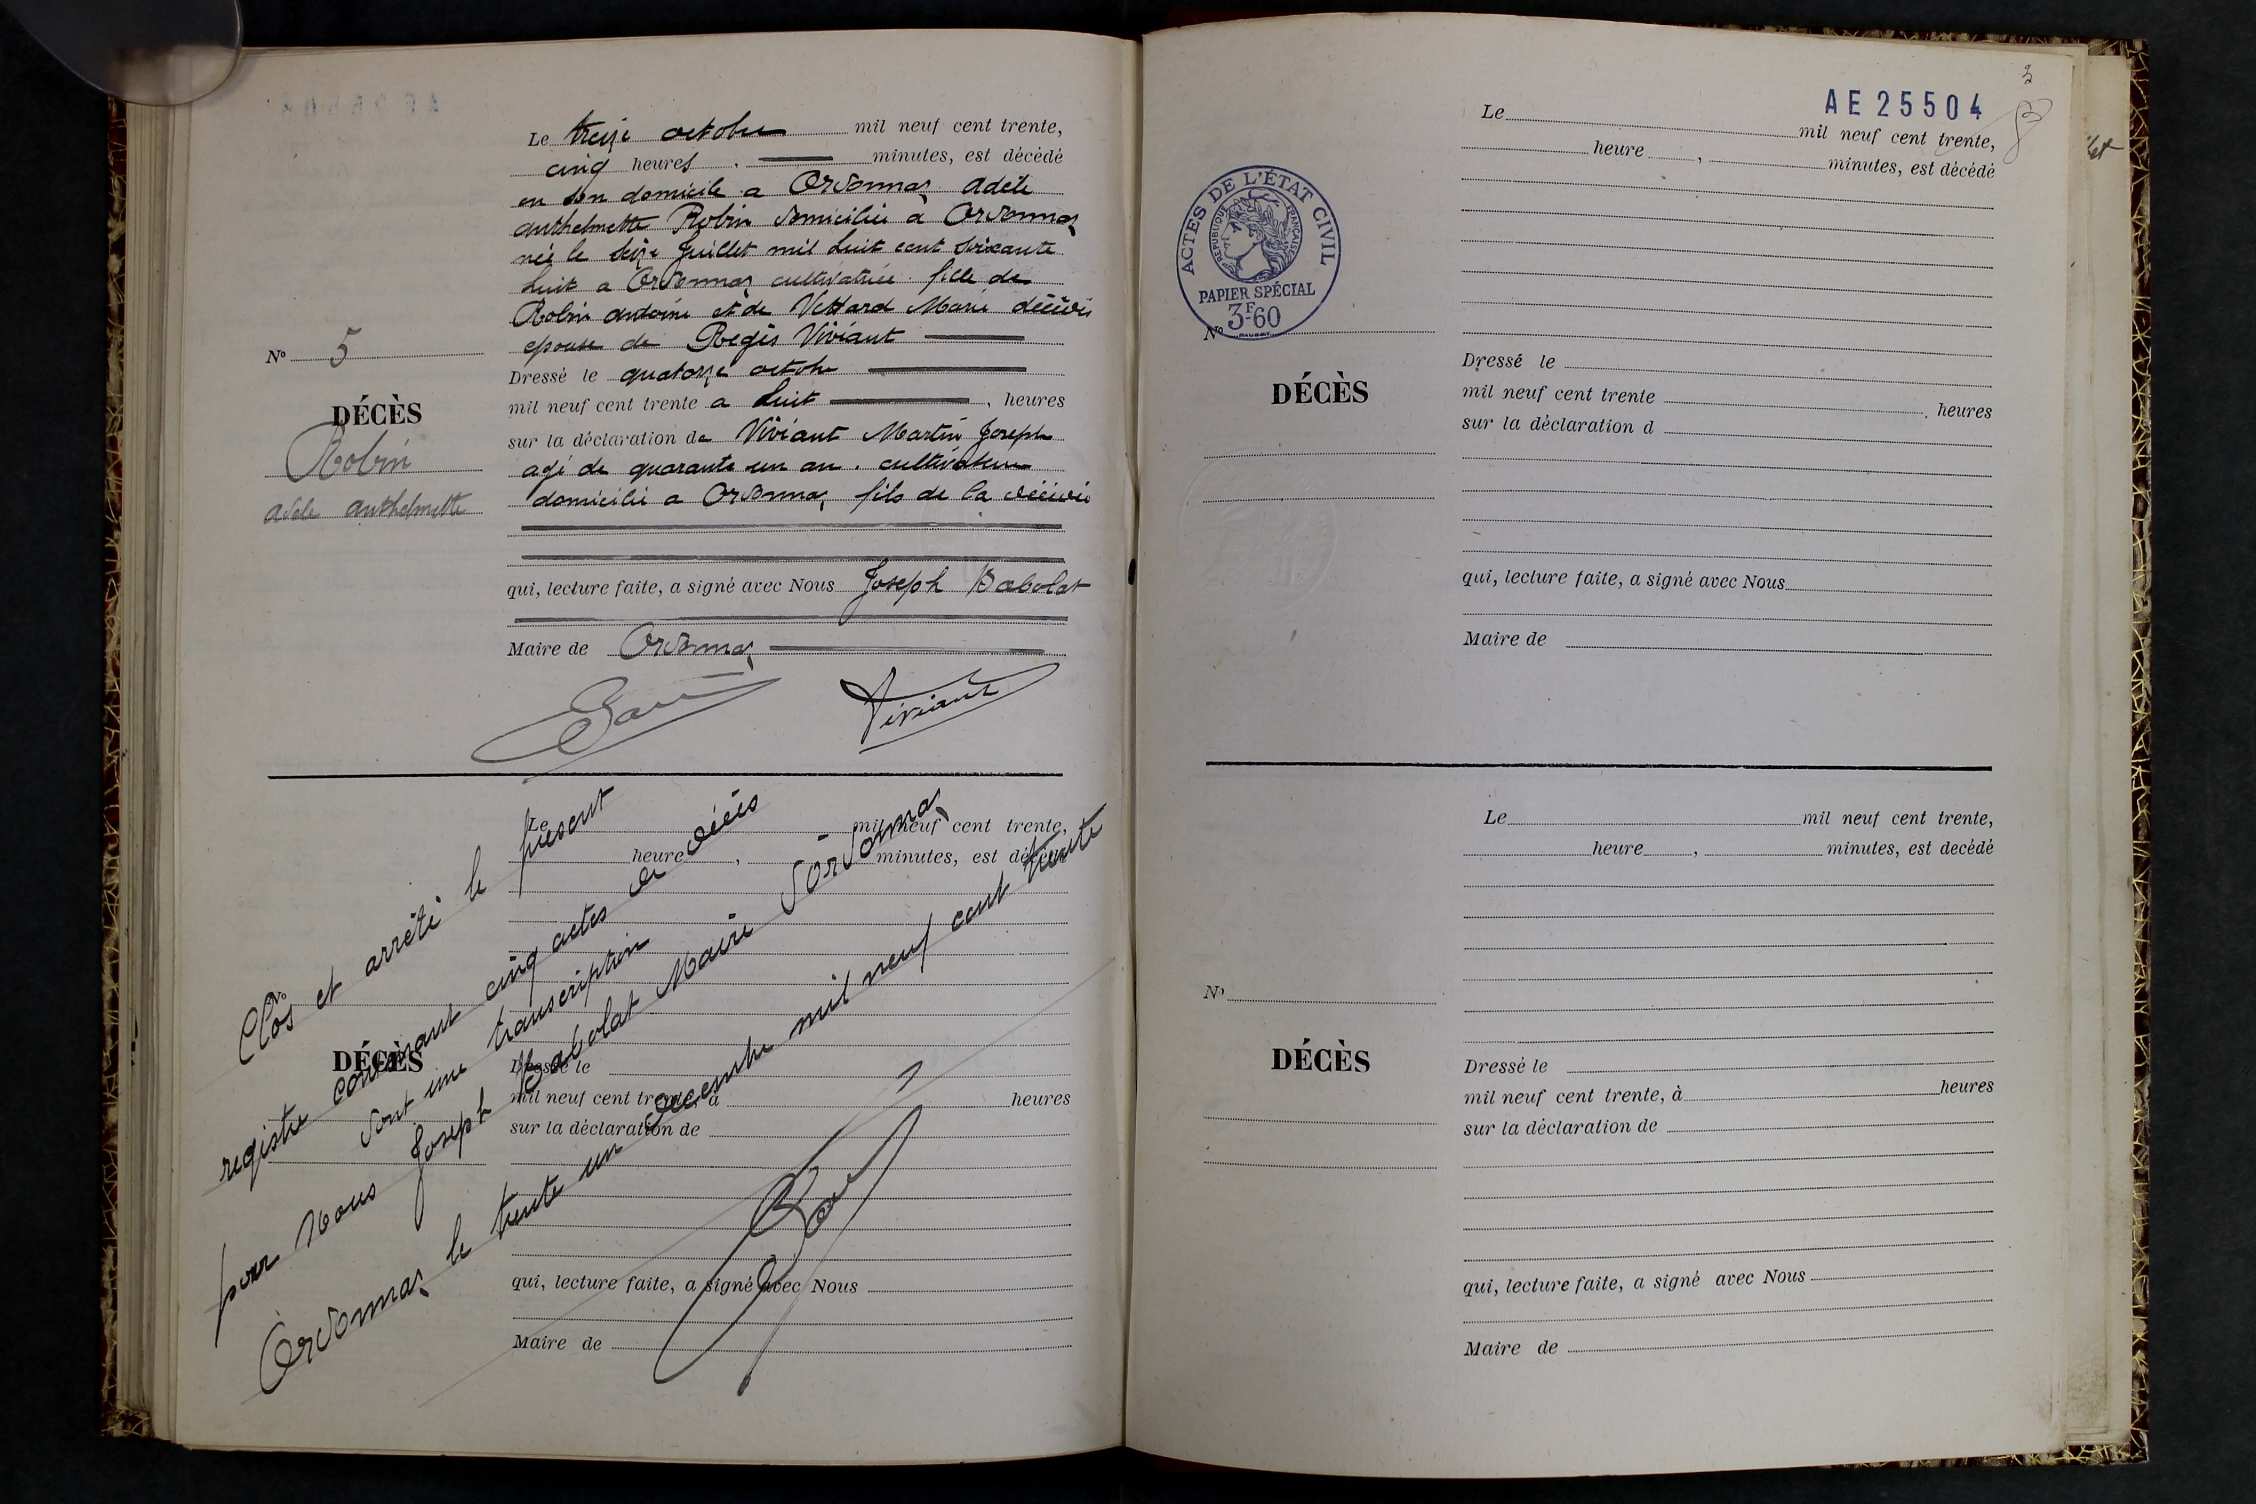 Le treize octobre mil neuf cent trente,
cinq heures . minutes, est décédé
en son domicile a Ordonnaz Adèle
anthelmette Robin domiciliée à Ordonnaz
née le seize Juillet mil huit cent soixante
huit a Ordonnaz cultivatrice fille de
Robin antoine et de Vettard Marie décédés
epouse de Régis Viviant
Dressé le quatorze octobre
mil neuf cent trente a huit , heures
sur la déclaration de Viviant Martin Joseph
agé de quarante un an . cultivateur
domicilié a Ordonnaz fils de la décédée
qui, lecture faite, a signé avec Nous Joseph Babolat
Maire de Ordonnaz
Viviant
No 5
DÉCÈS
Robin
adele anthelmette
Le mil neuf cent trente,
heure , minutes, est décédé
No
DÉCÈS
Dressé le
mil neuf cent trente, à heures
sur la déclaration de
qui, lecture faite, a signé avec Nous
Maire de
Clos et arrêté le présent
registre contenant cinq actes de décès
dont une transcription
par Nous Joseph Babolat Maire d'Ordonnaz
Ordonnaz le trente un decembre mil neuf cent trente
3
AE 25504
Le mil neuf cent trente,
heure , minutes, est décédé
ACTES DE L'ÉTAT CIVIL
RÉPUBLIQUE FRANÇAISE
PAPIER SPÉCIAL
3F60
No
DÉCÈS
Dressé le
mil neuf cent trente , heures
sur la déclaration d
qui, lecture faite, a signé avec Nous
Maire de
Le mil neuf cent trente,
heure , minutes, est decédé
No
DÉCÈS
Dressé le
mil neuf cent trente, à heures
sur la déclaration de
qui, lecture faite, a signé avec Nous
Maire de